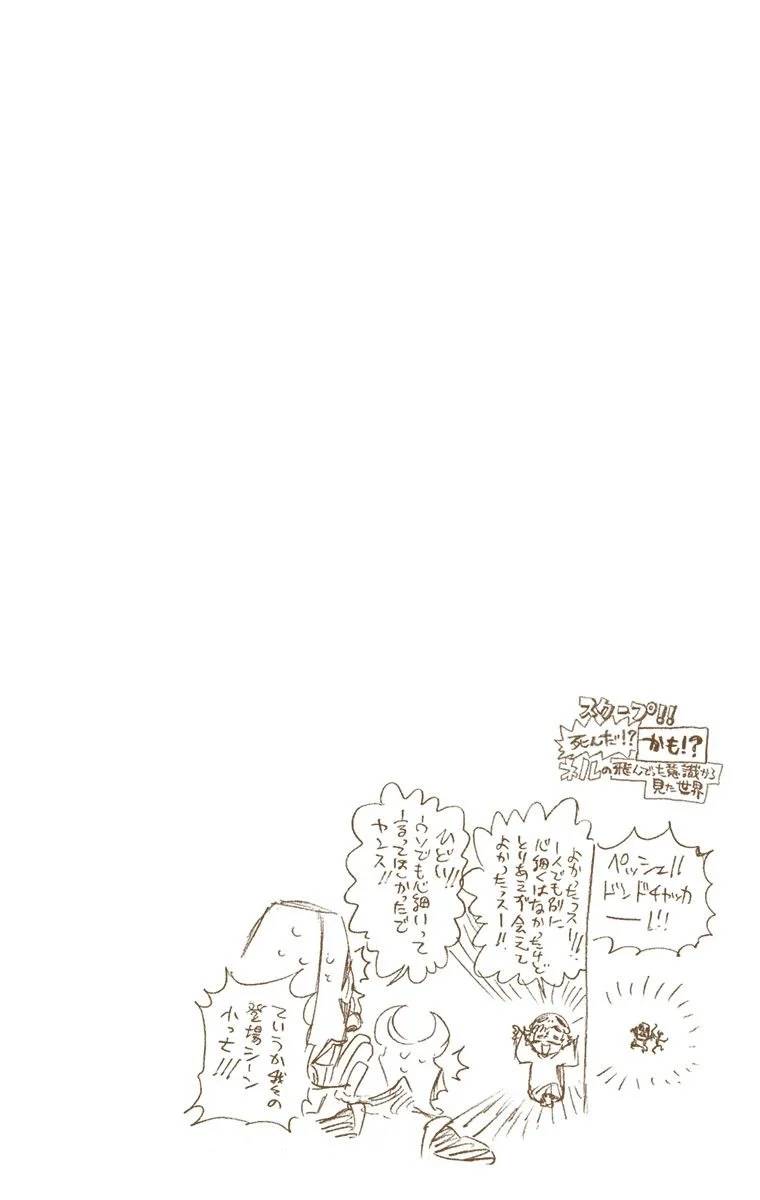 スクープ!!
死んだ!?
かも!?
ネルの飛んでった意識から
見た世界
ペッシェ!!
ドンドチャッカ
ーー!!!
よかったっスー!!
一人でも別に
心細くはなかったけど
とりあえず会えて
よかったっスー!!
ひどい!!
ウソでも心細いって
言ってほしかったで
ヤンス!!
ていうか我々の
登場シーン
小っさ!!!